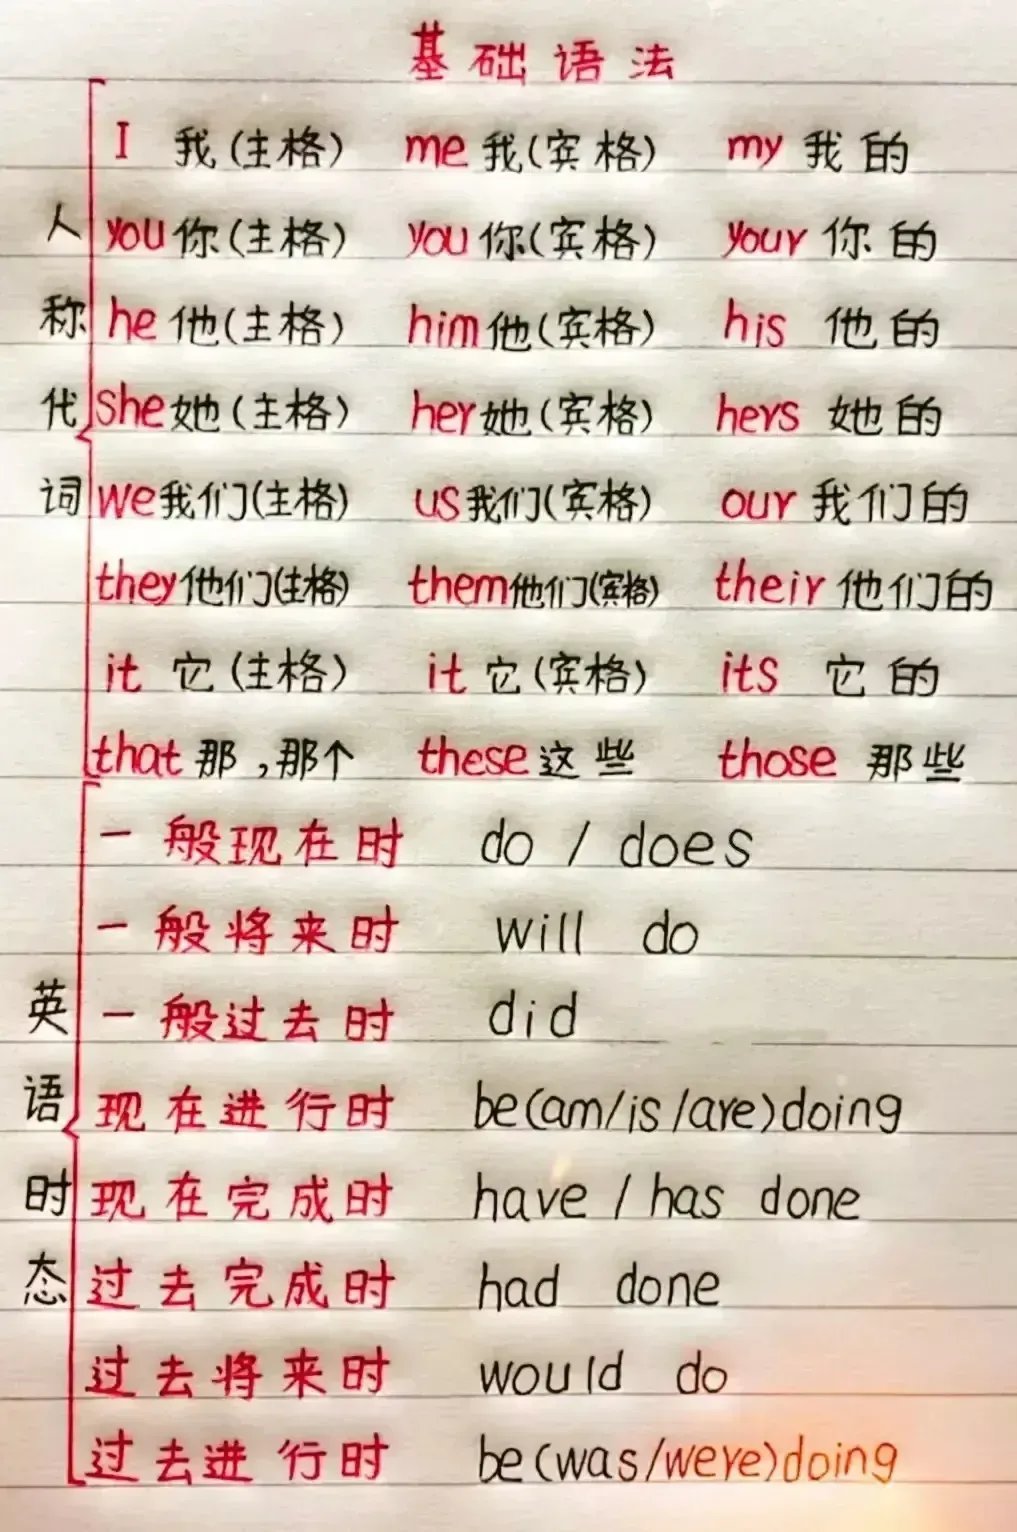 基础语法
人称代词
I 我(主格) me 我(宾格) my 我的
you 你(主格) you 你(宾格) your 你的
he 他(主格) him 他(宾格) his 他的
she 她(主格) her 她(宾格) hers 她的
we 我们(主格) us 我们(宾格) our 我们的
they 他们(主格) them 他们(宾格) their 他们的
it 它(主格) it 它(宾格) its 它的
that 那,那个 these 这些 those 那些
英语时态
一般现在时 do / does
一般将来时 will do
一般过去时 did
现在进行时 be(am/is/are)doing
现在完成时 have / has done
过去完成时 had done
过去将来时 would do
过去进行时 be(was/were)doing